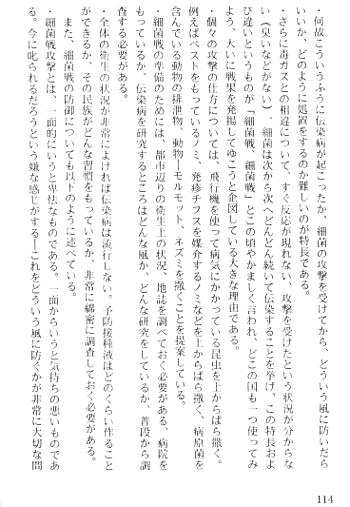 ・何故こういうふうに伝染病が起こったか、細菌の攻撃を受けてから、どういう風に防いだら
いいか、どのように処置をするのか難しいのが特長である。
・さらに毒ガスとの相違について、すぐ反応が現れない、攻撃を受けたという状況が分からな
い（臭いなどがない）、細菌は次から次へどんどん続いて伝染することを挙げ、この特長およ
び違いというものが「細菌戦、細菌戦」とこの頃やかましく言われ、どこの国も一つ使ってみ
よう、大いに戦果を発揚してゆこうと企図している大きな理由である。
・個々の攻撃の仕方については、飛行機を使って病気にかかっている昆虫を上からばら撒く。
例えばペストをもっているノミ、発疹チフスを媒介するノミなどを上からばら撒く、病原菌を
含んでいる動物の排泄物、動物―モルモット、ネズミを撒くことを提案している。
・細菌戦の準備のためには、都市辺りの衛生上の状況、地誌を調べておく必要がある、病院を
もっているか、伝染病を研究するところはどんな風か、どんな研究をしているか、普段から調
査する必要がある。
・全体の衛生の状況が非常によければ伝染病は流行しない。予防接種液はどのくらい作ること
ができるか、その民族がどんな習慣をもっているか、非常に綿密に調査しておく必要がある。
また、細菌戦の防御についても以下のように述べている。
・細菌戦攻撃とは、一面的にいうと卑怯なものである。一面からいうと気持ちの悪いものであ
る。今に叱られるだろうという嫌な感じがする―これをどういう風に防ぐかが非常に大切な問
114